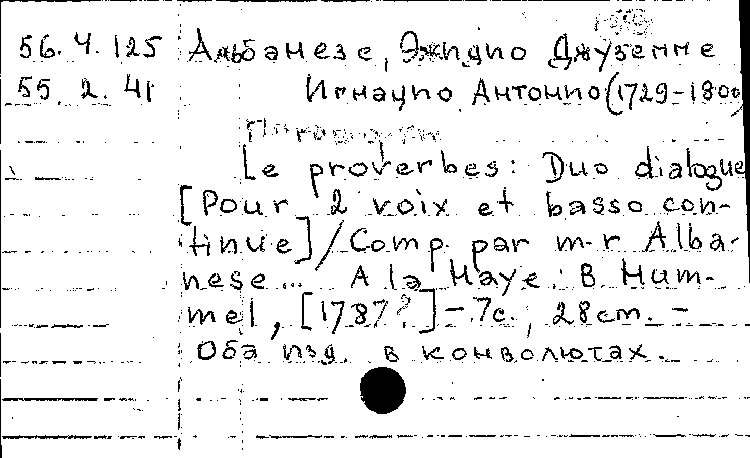 56.4.125 Альбанезе, Эжидио Джузеппе
55.2.41 Игнацио Антонио (1729-1800)
Le proverbes: Duo dialogue
[Pour 2 voix et basso con-
tinue] / Comp. par m-r Alba-
nese... A la Haye: B. Hum-
mel, [1787?] - 7c.; 28cm. -
Оба изд. в конволютах.